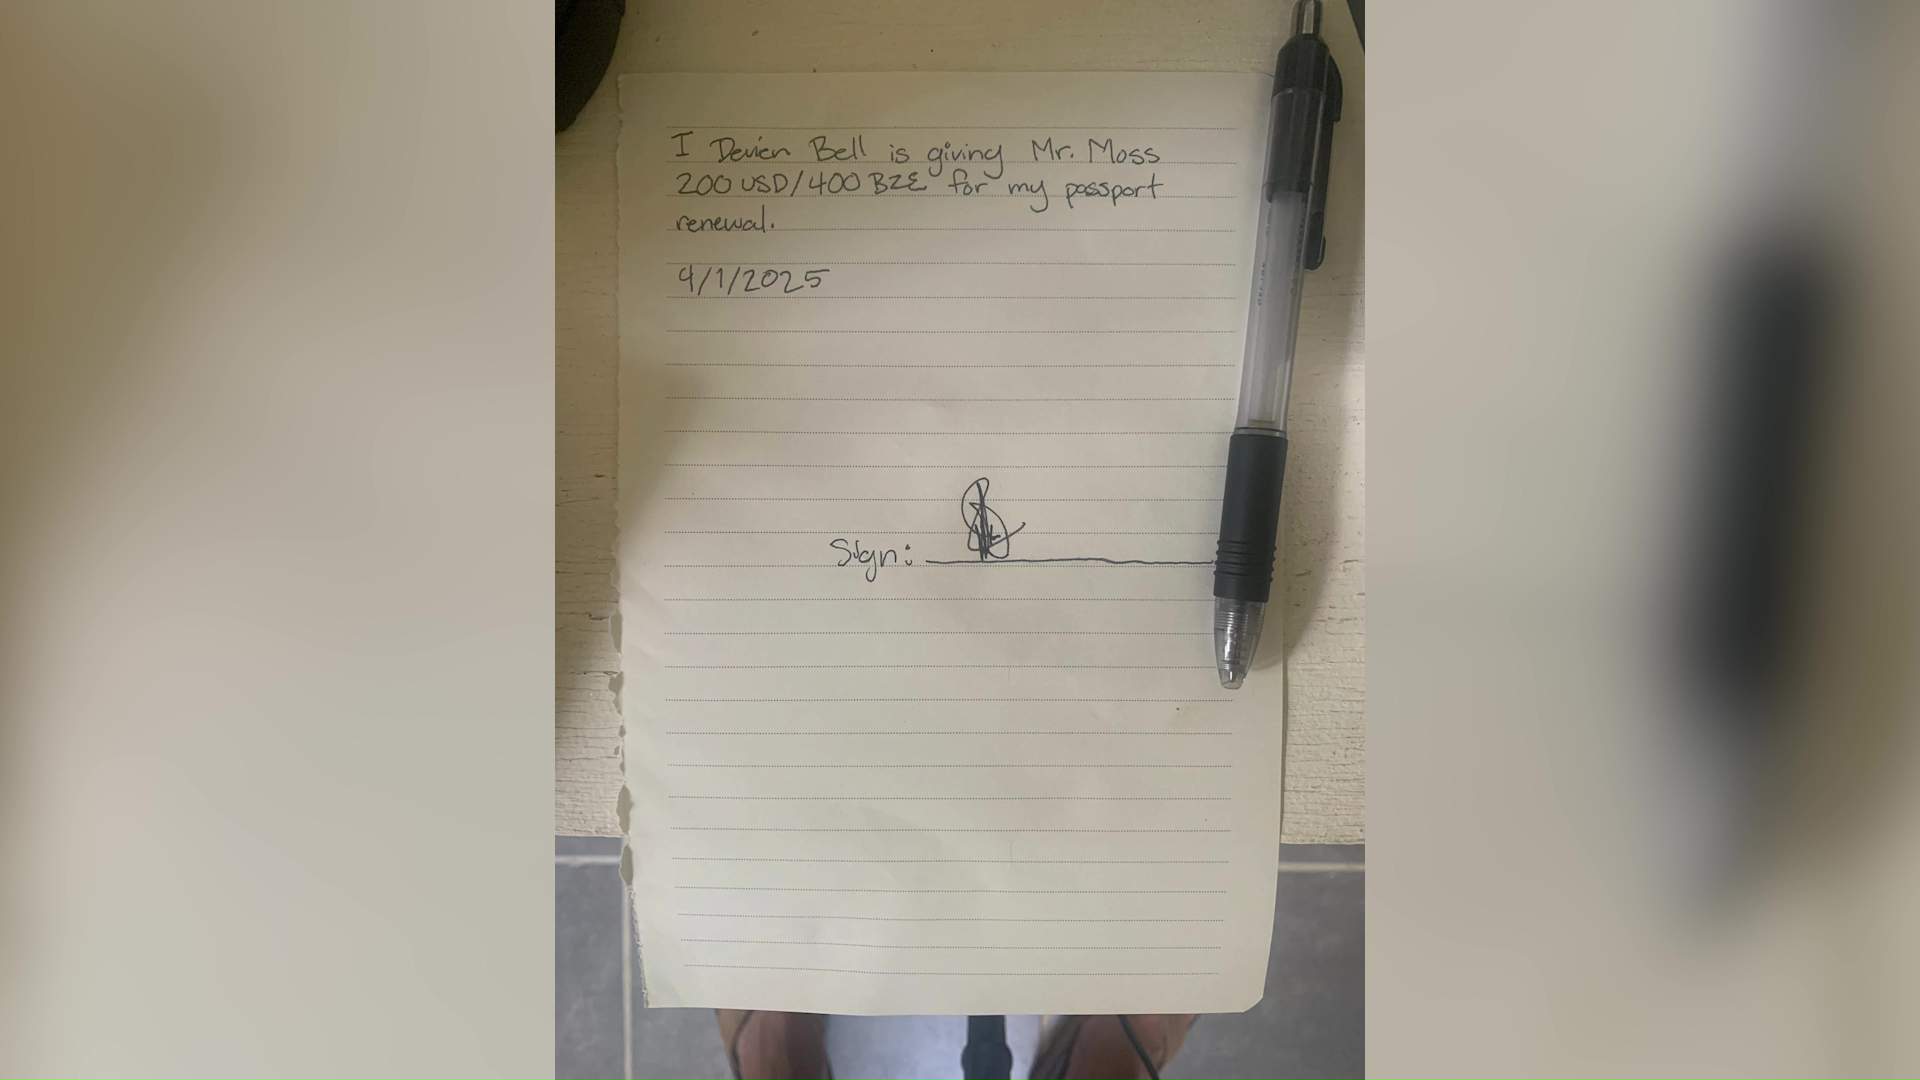 I Devien Bell is giving Mr. Moss
200 USD/400 BZE for my passport
renewal.
4/1/2025
Sign: